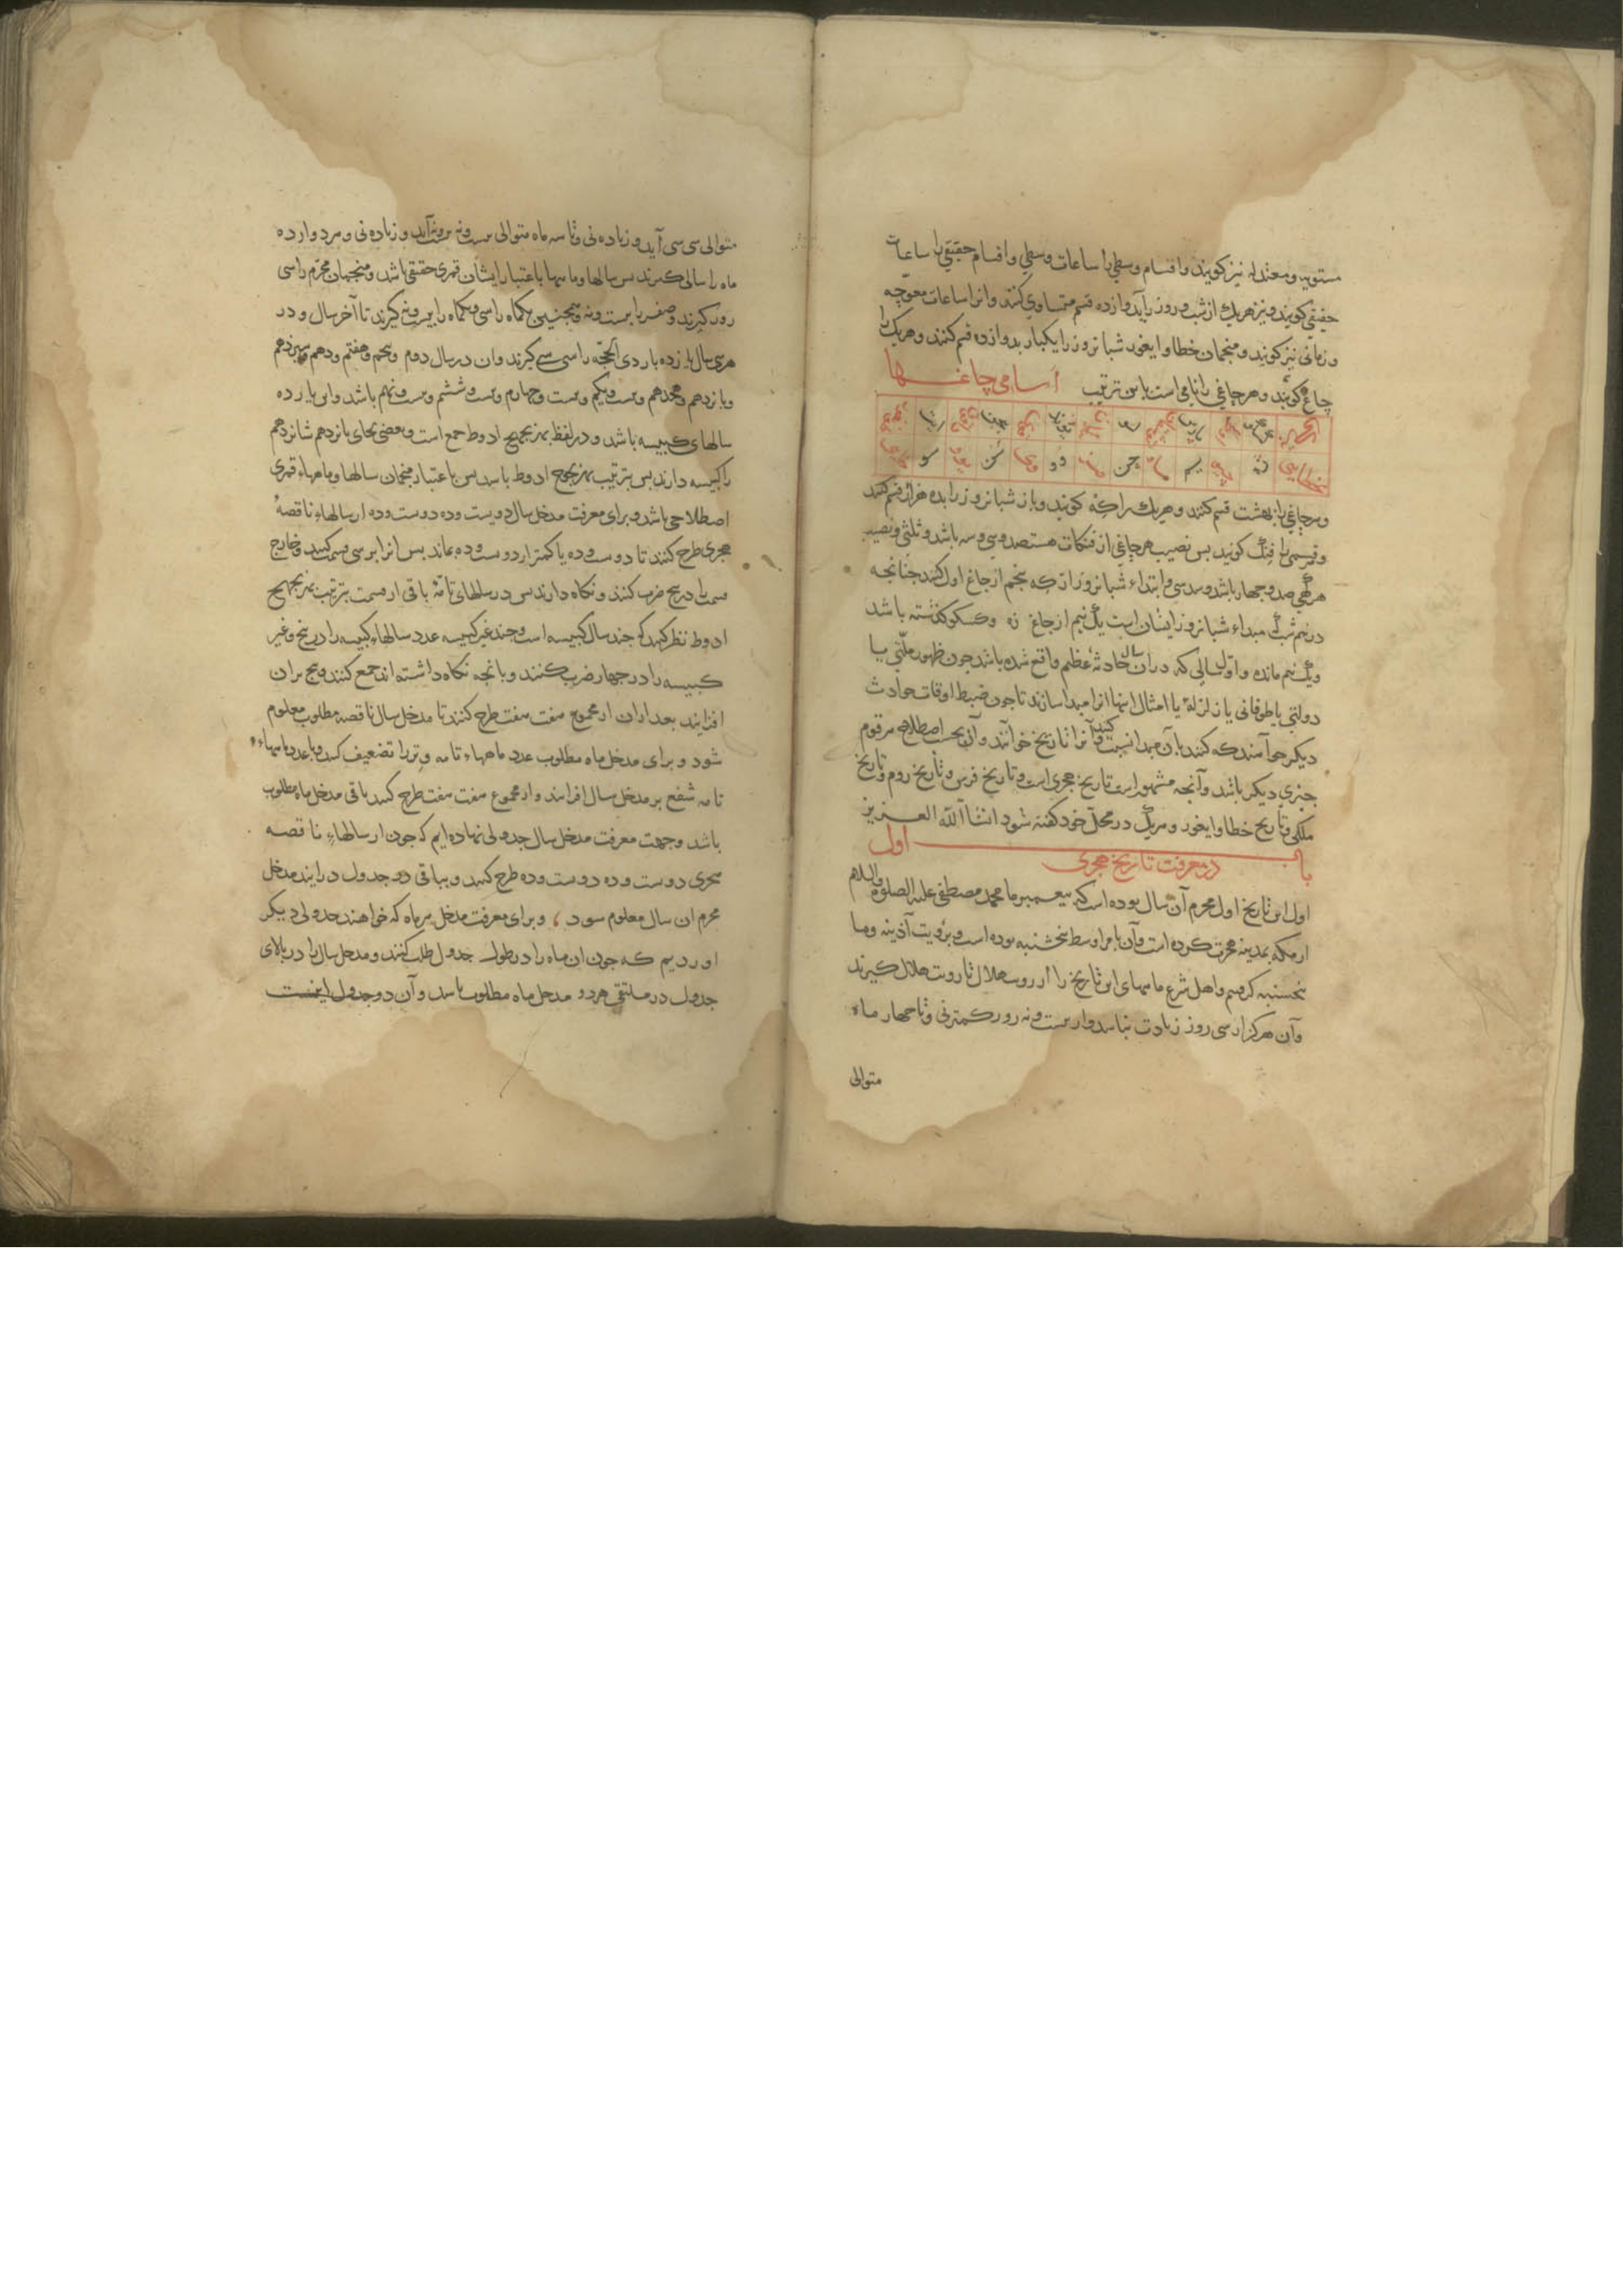 مستویه و معتدله نیز کویند و اقسام وسطی را ساعات وسطی و اقسام حقیقی را ساعات
حقیقی کویند و نیز هریک از شب و روز را بدوازده قسم متساوی کنند و انرا ساعات معوجه
و زمانی نیز کویند و منجمان خطا و ایغور شبانروز را یکبار بدوازده قسم کنند و هریک را
چاغ کویند و هر چاغی را نامی است باین ترتیب اسامی چاغها
و هر چاغی را بهشت قسم کنند و هریک را که کویند و باز شبانروز را بده هزار قسم کنند
و قسمی را فنک کویند بس نصیب هر چاغی از فنکات هشتصد و سی و سه باشد و ثلثی و نصیب
هر کهی صد و چهار باشد و سدسی و ابتداء شبانروز از که پنجم از چاغ اول کنند چنانجه
در نیم شب که مبداء شبانروز ایشان است یک نیم از چاغ زه و کسکو گذشته باشد
ویک نیم مانده و اول سالی که در ان سال حادثه عظیم واقع شده باشد چون ظهور ملتی یا
دولتی یا طوفانی یا زلزلهٔ یا امثال اینها انرا مبدا سازند تا چون ضبط اوقات حوادث
دیکر خواهند که کنند بان مبدا نسبت کنند و آنرا تاریخ خوانند و آن بحسب اصطلاح هر قوم
چیزی دیکر باشد و آنچه مشهور است تاریخ هجری است و تاریخ فرس و تاریخ روم و تاریخ
ملکی و تاریخ خطا و ایغور و هریک در محل خود کفته شود انشاالله العزیز
باب اول
در معرفت تاریخ هجری
اول این تاریخ اول محرم آن سال بوده است که پیغمبر ما محمد مصطفی علیه الصلوة والسلام
از مکه بمدینه هجرت کرده است و آن بامر اوسط پنجشنبه بوده است و برؤیت آذینه و ما
پنجشنبه گرفتیم و اهل شرع ماههای این تاریخ را از رویت هلال تا رویت هلال گیرند
و آن هرکز از سی روز زیادت نباشد و از بیست و نه روز کمتر نی و تا چهار ماه
متوالی
متوالی سی سی آید و زیاده نی و تا سه ماه متوالی بیست و نه بیست و نه آید و زیاده نی و هر دوازده
ماه را سالی گیرند بس سالها و ماهها باعتبار ایشان قمری حقیقی باشد و منجمان محرم را سی
روز گیرند و صفر را بیست و نه و همچنین یکماه را سی و یکماه را بیست و نه گیرند تا آخر سال و در
هر سی سال یازده بار ذی الحجه را سی گیرند و ان در سال دوم و پنجم و هفتم و دهم و سیزدهم
و پانزدهم و هجدهم و بیست و یکم و بیست و چهارم و بیست و ششم و بیست و نهم باشد و این یازده
سالهای کبیسه باشد و در لفظ بهزیجهیح ادوط جمع است و بعضی بجای پانزدهم شانزدهم
را کبیسه دارند بس بترتیب بهزیجوح ادوط باشد بس باعتبار منجمان سالها و ماهها قمری
اصطلاحی باشد و برای معرفت مدخل سال دویست و ده دویست و ده از سالهاء ناقصهٔ
هجری طرح کنند تا دویست و ده یا کمتر از دویست و ده بماند بس انرا بر سی قسمت کنند و خارج
قسمت را در پنج ضرب کنند و نکاه دارند بس در سالهای تامهٔ باقی از قسمت بترتیب بهزیجهیح
ادوط نظر کنند که چند سال کبیسه است و چند غیر کبیسه عدد سالهاء کبیسه را در پنج و غیر
کبیسه را در چهار ضرب کنند و بانچه نکاه داشته اند جمع کنند و پنج بران
افزایند بعد ازان از مجموع هفت هفت طرح کنند تا مدخل سال ناقصه مطلوب معلوم
شود و برای مدخل ماه مطلوب عدد ماهها تامه وتر را تضعیف کنند و با عدد ماهها
تامه شفع بر مدخل سال افزایند و از مجموع هفت هفت طرح کنند باقی مدخل ماه مطلوب
باشد و جهت معرفت مدخل سال جدولی نهاده ایم که چون از سالهاء ناقصه
هجری دویست و ده دویست و ده طرح کنند و بباقی در جدول درایند مدخل
محرم ان سال معلوم شود و برای معرفت مدخل هر ماه که خواهند جدولی دیکر
اوردیم که چون ان ماه را در طول جدول طلب کنند و مدخل سال را در بالای
جدول در ملتقی هر دو مدخل ماه مطلوب باشد و آن دو جدول اینست